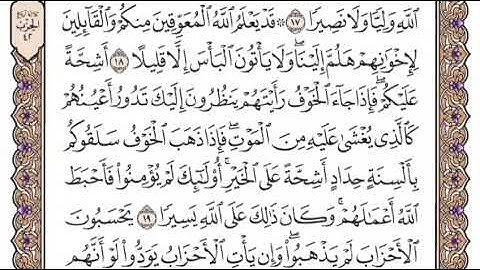 ٱللَّهِ وَلِيًّا وَلَا نَصِيرًا ١٧ ۞ قَدْ يَعْلَمُ ٱللَّهُ ٱلْمُعَوِّقِينَ مِنكُمْ وَٱلْقَآئِلِينَ
لِإِخْوَٰنِهِمْ هَلُمَّ إِلَيْنَا ۖ وَلَا يَأْتُونَ ٱلْبَأْسَ إِلَّا قَلِيلًا ١٨ أَشِحَّةً
عَلَيْكُمْ ۖ فَإِذَا جَآءَ ٱلْخَوْفُ رَأَيْتَهُمْ يَنظُرُونَ إِلَيْكَ تَدُورُ أَعْيُنُهُمْ
كَٱلَّذِى يُغْشَىٰ عَلَيْهِ مِنَ ٱلْمَوْتِ ۖ فَإِذَا ذَهَبَ ٱلْخَوْفُ سَلَقُوكُم
بِأَلْسِنَةٍ حِدَادٍ أَشِحَّةً عَلَى ٱلْخَيْرِ ۚ أُو۟لَٰٓئِكَ لَمْ يُؤْمِنُوا۟ فَأَحْبَطَ
ٱللَّهُ أَعْمَٰلَهُمْ ۚ وَكَانَ ذَٰلِكَ عَلَى ٱللَّهِ يَسِيرًا ١٩ يَحْسَبُونَ
ٱلْأَحْزَابَ لَمْ يَذْهَبُوا۟ ۖ وَإِن يَأْتِ ٱلْأَحْزَابُ يَوَدُّوا۟ لَوْ أَنَّهُم
الحزب
٤٢